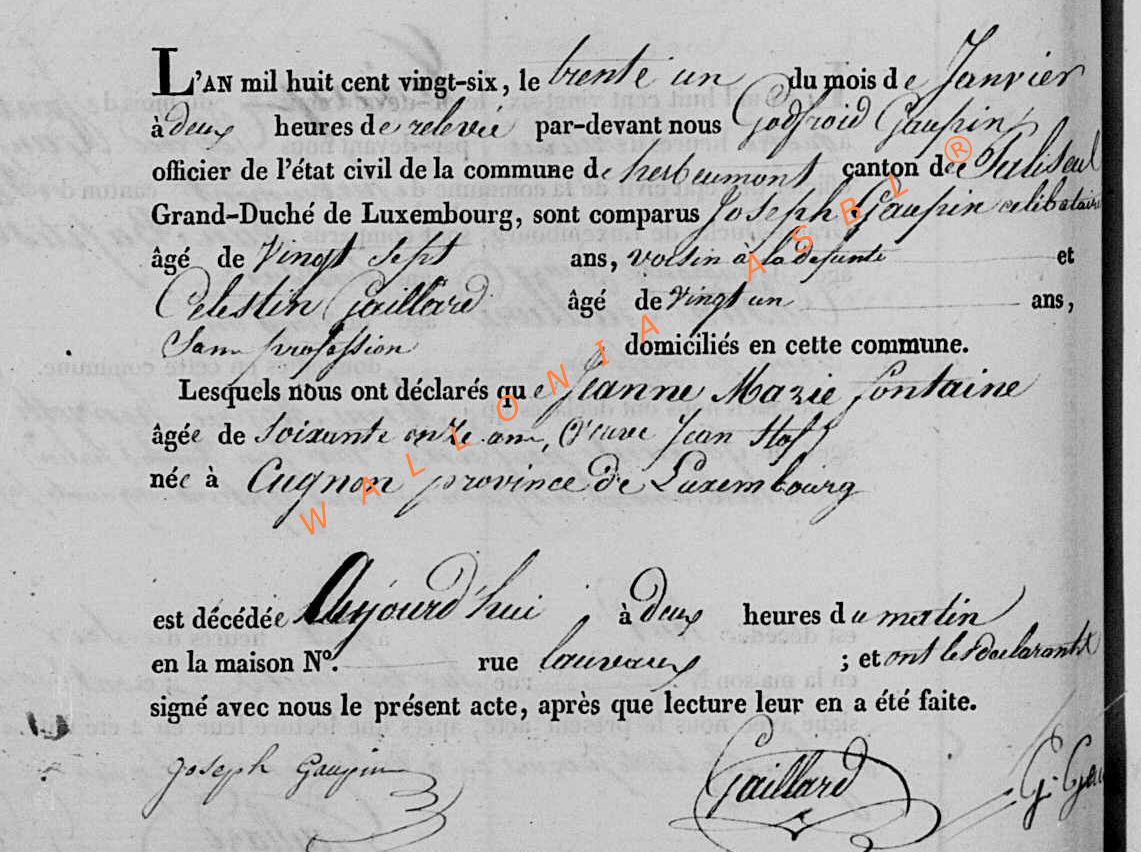 L'AN mil huit cent vingt-six, le trente un du mois de Janvier
à deux heures de relevée par-devant nous Godfroid Gaupin
officier de l'état civil de la commune de herbeumont canton de Paliseul
Grand-Duché de Luxembourg, sont comparus Joseph Gaupin celibataire
âgé de Vingt sept ans, voisin à la defunte et
Celestin Gaillard âgé de Vingt un ans,
Sans profession domiciliés en cette commune.
Lesquels nous ont déclarés que Jeanne Marie fontaine
âgée de Soixante onze ans, Veuve Jean
née à Cugnon province de Luxembourg
est décédée Aujourd'hui à deux heures du matin
en la maison N°. rue ; et ont les declarants
signé avec nous le présent acte, après que lecture leur en a été faite.
Joseph Gaupin Gaillard G. Gau
WALLONIA ASBL ®